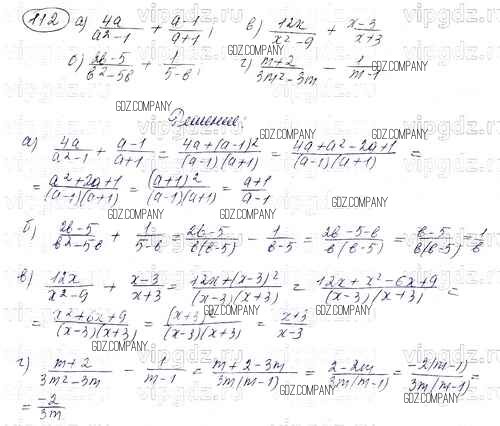 112 а) 4a/(a²-1) + (a-1)/(a+1); в) 12x/(x²-9) + (x-3)/(x+3)
б) (2в-5)/(в²-5в) + 1/(5-в); г) (m+2)/(3m²-3m) - 1/(m-1)
Решение:
а) 4a/(a²-1) + (a-1)/(a+1) = (4a+(a-1)²)/((a-1)(a+1)) = (4a+a²-2a+1)/((a-1)(a+1)) =
= (a²+2a+1)/((a-1)(a+1)) = (a+1)²/((a-1)(a+1)) = (a+1)/(a-1)
б) (2в-5)/(в²-5в) + 1/(5-в) = (2в-5)/(в(в-5)) - 1/(в-5) = (2в-5-в)/(в(в-5)) = (в-5)/(в(в-5)) = 1/в
в) 12x/(x²-9) + (x-3)/(x+3) = (12x+(x-3)²)/((x-3)(x+3)) = (12x+x²-6x+9)/((x-3)(x+3)) =
= (x²+6x+9)/((x-3)(x+3)) = (x+3)²/((x-3)(x+3)) = (x+3)/(x-3)
г) (m+2)/(3m²-3m) - 1/(m-1) = (m+2-3m)/(3m(m-1)) = (2-2m)/(3m(m-1)) = -2(m-1)/(3m(m-1)) =
= -2/3m
GDZ.COMPANY
vipgdz.ru